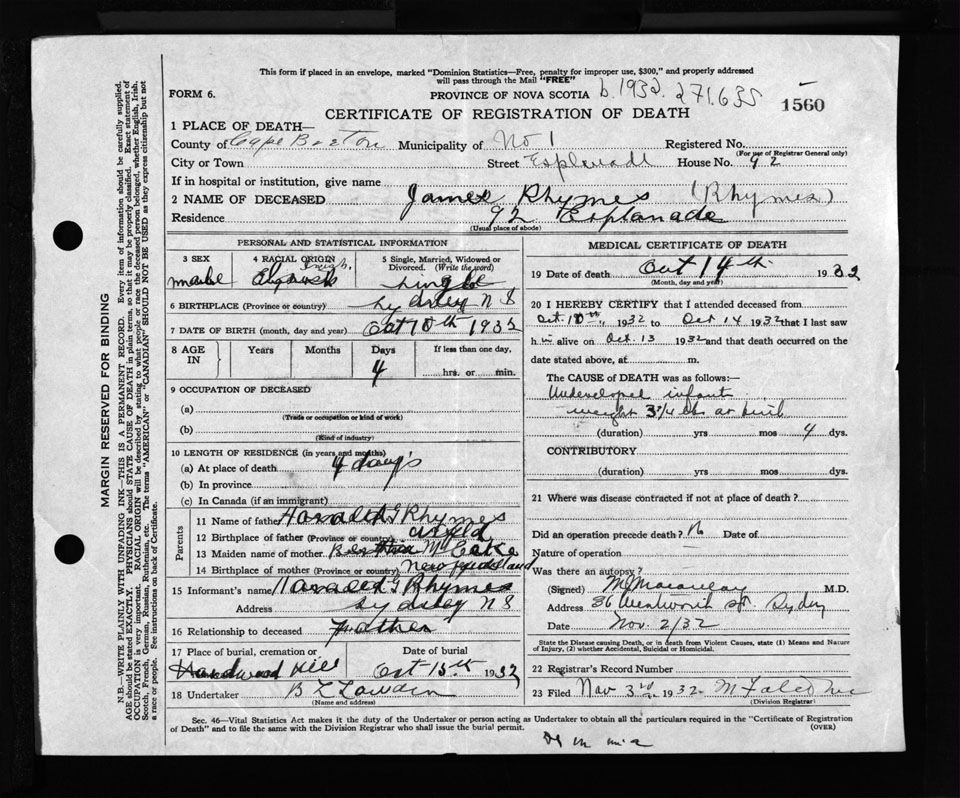 This form if placed in an envelope, marked "Dominion Statistics—Free, penalty for improper use, $300," and properly addressed
will pass through the Mail "FREE"
FORM 6.
PROVINCE OF NOVA SCOTIA b. 1932. 271.635
1560
CERTIFICATE OF REGISTRATION OF DEATH
1 PLACE OF DEATH—
County of Cape Breton Municipality of No 1 Registered No.
(For use of Registrar General only)
City or Town Street House No. 92
If in hospital or institution, give name
2 NAME OF DECEASED James Rhymes (Rhymes)
Residence 92 Esplanade
(Usual place of abode)
PERSONAL AND STATISTICAL INFORMATION
3 SEX
4 RACIAL ORIGIN
5 Single, Married, Widowed or Divorced. (Write the word)
single
6 BIRTHPLACE (Province or country) Sydney N S
7 DATE OF BIRTH (month, day and year) Oct 10th 1932
8 AGE IN Years Months Days If less than one day,
4 hrs. or min.
9 OCCUPATION OF DECEASED
(a)
(Trade or occupation or kind of work)
(b)
(Kind of industry)
10 LENGTH OF RESIDENCE (in years and months)
(a) At place of death 4 days
(b) In province
(c) In Canada (if an immigrant)
Parents
11 Name of father G Rhymes
12 Birthplace of father (Province or country)
13 Maiden name of mother
14 Birthplace of mother (Province or country) Newfoundland
15 Informant's name G Rhymes
Address Sydney N S
16 Relationship to deceased Father
17 Place of burial, cremation or Date of burial
Hardwood Hill Oct 15th 1932
18 Undertaker
(Name and address)
MEDICAL CERTIFICATE OF DEATH
19 Date of death Oct 14th 1932
(Month, day and year)
20 I HEREBY CERTIFY that I attended deceased from
Oct. 10th, 1932 to Oct 14 1932 that I last saw
h im alive on Oct. 13 1932 and that death occurred on the
date stated above, at m.
The CAUSE of DEATH was as follows:—
Undeveloped infant
weight 3 1/4 lbs at birth
(duration) yrs mos 4 dys.
CONTRIBUTORY
(duration) yrs mos dys.
21 Where was disease contracted if not at place of death?
Did an operation precede death? Date of
Nature of operation
Was there an autopsy?
(Signed) M.D.
Address 36 Wentworth St. Sydney
Date Nov. 2/32
State the Disease causing Death, or in death from Violent Causes, state (1) Means and Nature of Injury, (2) whether Accidental, Suicidal or Homicidal.
22 Registrar's Record Number
23 Filed Nov 3rd 1932
(Division Registrar)
Sec. 46—Vital Statistics Act makes it the duty of the Undertaker or person acting as Undertaker to obtain all the particulars required in the "Certificate of Registration
of Death" and to file the same with the Division Registrar who shall issue the burial permit.
(OVER)
MARGIN RESERVED FOR BINDING
N.B.—WRITE PLAINLY WITH UNFADING INK—THIS IS A PERMANENT RECORD. Every item of information should be carefully supplied.
AGE should be stated EXACTLY. PHYSICIANS should STATE CAUSE OF DEATH in plain terms, so that it may be properly classified. Exact statement of
OCCUPATION is very important. RACIAL ORIGIN will be described by stating to what people or race the deceased person belonged, whether English, Irish,
Scotch, French, German, Russian, Ruthenian, etc. The terms "AMERICAN" or "CANADIAN" SHOULD NOT BE USED as they express citizenship but not
a race or people. See instructions on back of Certificate.